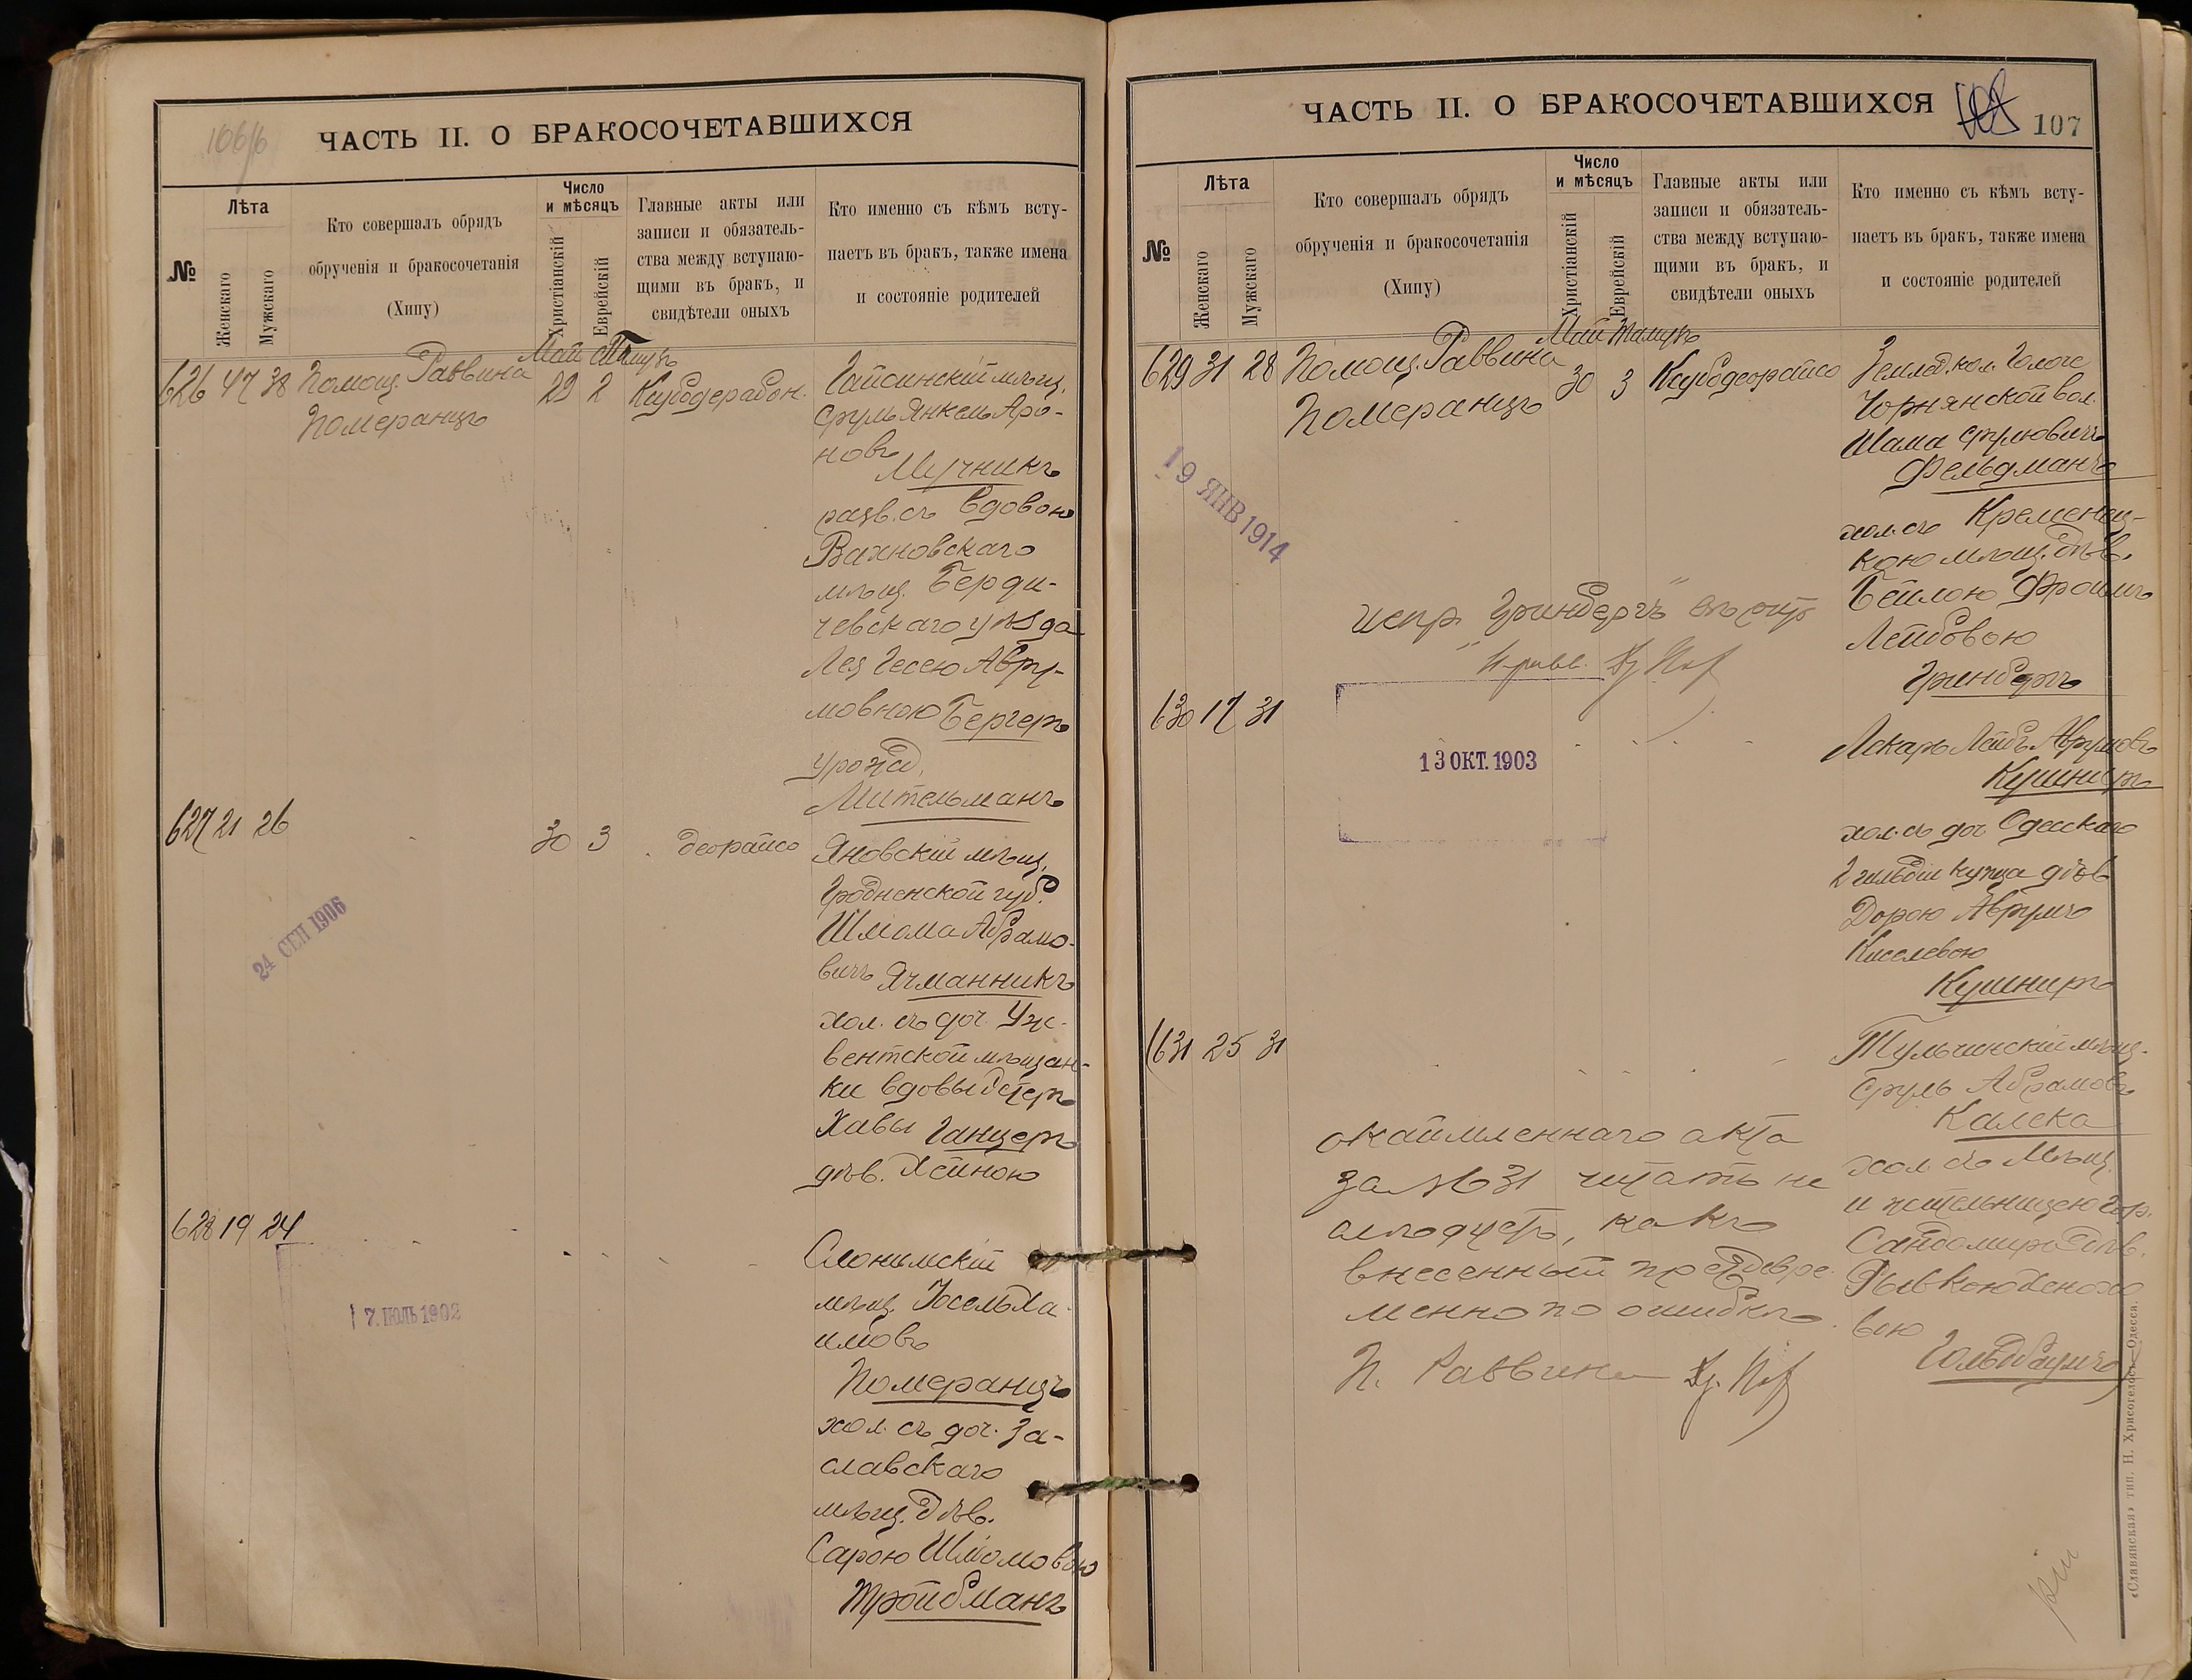 106/б
ЧАСТЬ II. О БРАКОСОЧЕТАВШИХСЯ
№
Лѣта
Женскаго
Мужскаго
Кто совершалъ обрядъ
обрученія и бракосочетанія
(Хипу)
Число
и мѣсяцъ
Христіанскій
Еврейскій
Главные акты или
записи и обязатель-
ства между вступаю-
щими въ бракъ, и
свидѣтели оныхъ
Кто именно съ кѣмъ всту-
паетъ въ бракъ, также имена
и состояніе родителей
Май Тамузъ
626 47 38 Помощ. Раввина 29 2
Померанцъ
Гайсинскій мѣщ.
Сруль Янкель Аро-
новъ
Мучникъ
разв. съ вдовою
Вахновскаго
мѣщ. Берди-
чевскаго уѣзда
Лея Гесею Авру-
мовною Бергеръ
урожд.
Мительманъ
627 21 26 30 3 деорайсо
Яновскій мѣщ.
Гродненской губ.
Шлема Абрамо-
вичъ Ячманникъ
хол. съ доч. Уж-
вентской мѣщан-
ки вдовы Естеръ
Хавы Ганцеръ
дѣв. Хейною
24 СЕН 1906
628 19 24
Слонимскій
мѣщ. Іосель Ха-
имовъ
Померанцъ
хол. съ доч. За-
славскаго
мѣщ. дѣв.
Сарою Шлемовою
Тройбманъ
17. ІЮЛЬ 1902
ЧАСТЬ II. О БРАКОСОЧЕТАВШИХСЯ
107
№
Лѣта
Женскаго
Мужскаго
Кто совершалъ обрядъ
обрученія и бракосочетанія
(Хипу)
Число
и мѣсяцъ
Христіанскій
Еврейскій
Главные акты или
записи и обязатель-
ства между вступаю-
щими въ бракъ, и
свидѣтели оныхъ
Кто именно съ кѣмъ всту-
паетъ въ бракъ, также имена
и состояніе родителей
Май Тамузъ
629 31 28 Помощ. Раввина 30 3
Померанцъ
Землед. кол.
Чорнянской вол.
Шама Срулювичъ
Фельдманъ
хол. съ Кременец-
кою мѣщ. дѣв.
Бейлою Фроимъ
Лейбовою
Гринбергъ
19 ЯНВ 1914
испр. "Гринбергъ"
630 17 31
Лекарь Лейбъ Аврумовъ
Кушниръ
хол. съ доч. Одесскаго
2 гильдіи купца дѣв.
Дорою Аврумъ
Киселевою
Кушниръ
13 ОКТ. 1903
631 25 31
Тульчинскій мѣщ.
Сруль Абрамовъ
Калека
хол. съ Мѣщ.
и жительницею гор.
Сандомира дѣв.
Рывкою Хенохо
вою
Гольдбаумъ
окаймленнаго акта
за №631 читать не
слѣдуетъ, какъ
внесенный преждевре
менно по ошибкѣ.
П. Раввина
«Славянская» тип. Н. Хрисогелосъ—Одесса.